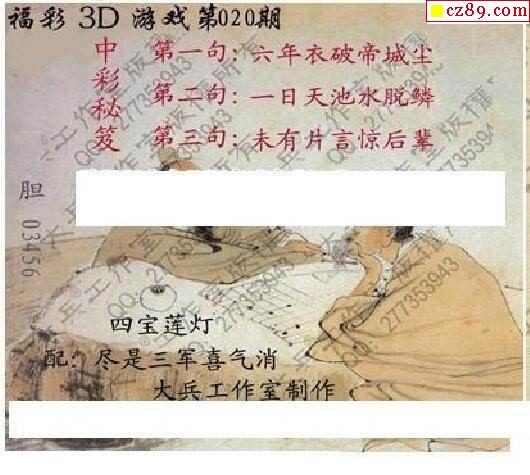 cz89.com
福彩 3D 游戏第020期
中彩秘笈
第一句：六年衣破帝城尘
第二句：一日天池水脱鳞
第三句：未有片言惊后辈
胆 03456
四宝莲灯
配：尽是三军喜气消
大兵工作室制作
大兵工作室版权所有
QQ:277353943